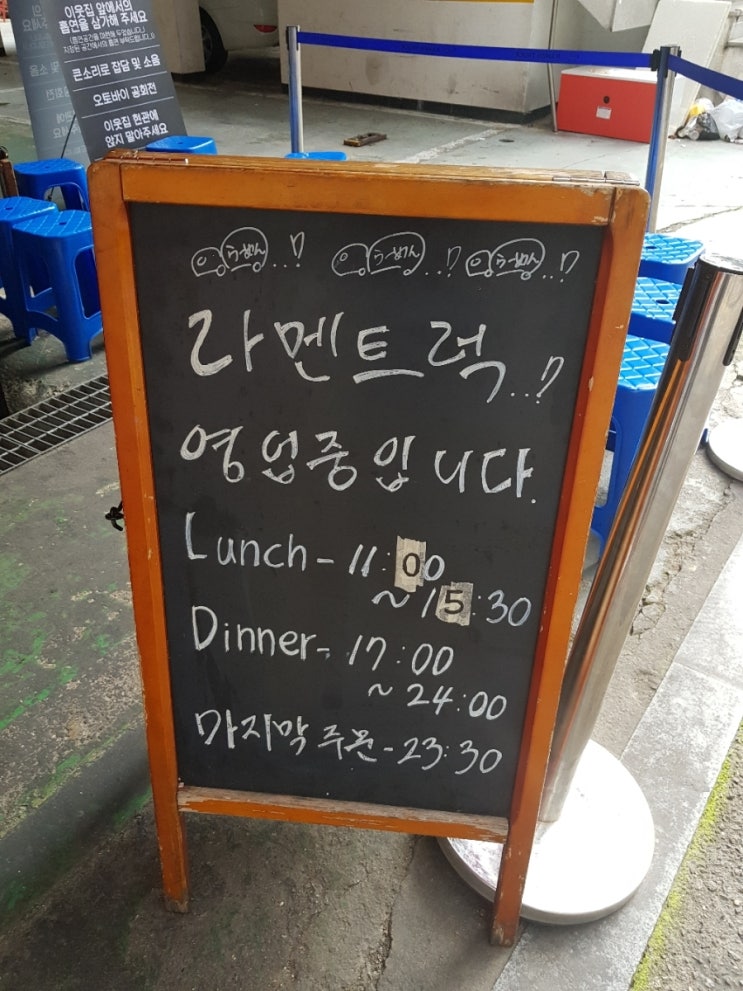 이웃집 앞에서의
흡연을 삼가해 주세요
큰소리로 잡담 및 소음
오토바이 공회전
이웃집 현관에
앉지 말아주세요
らーめん..!?
らーめん..!?
らーめん..!?
라멘트럭..!?
영업중입니다.
Lunch - 11:00
~ 15:30
Dinner - 17:00
~ 24:00
마지막 주문 - 23:30